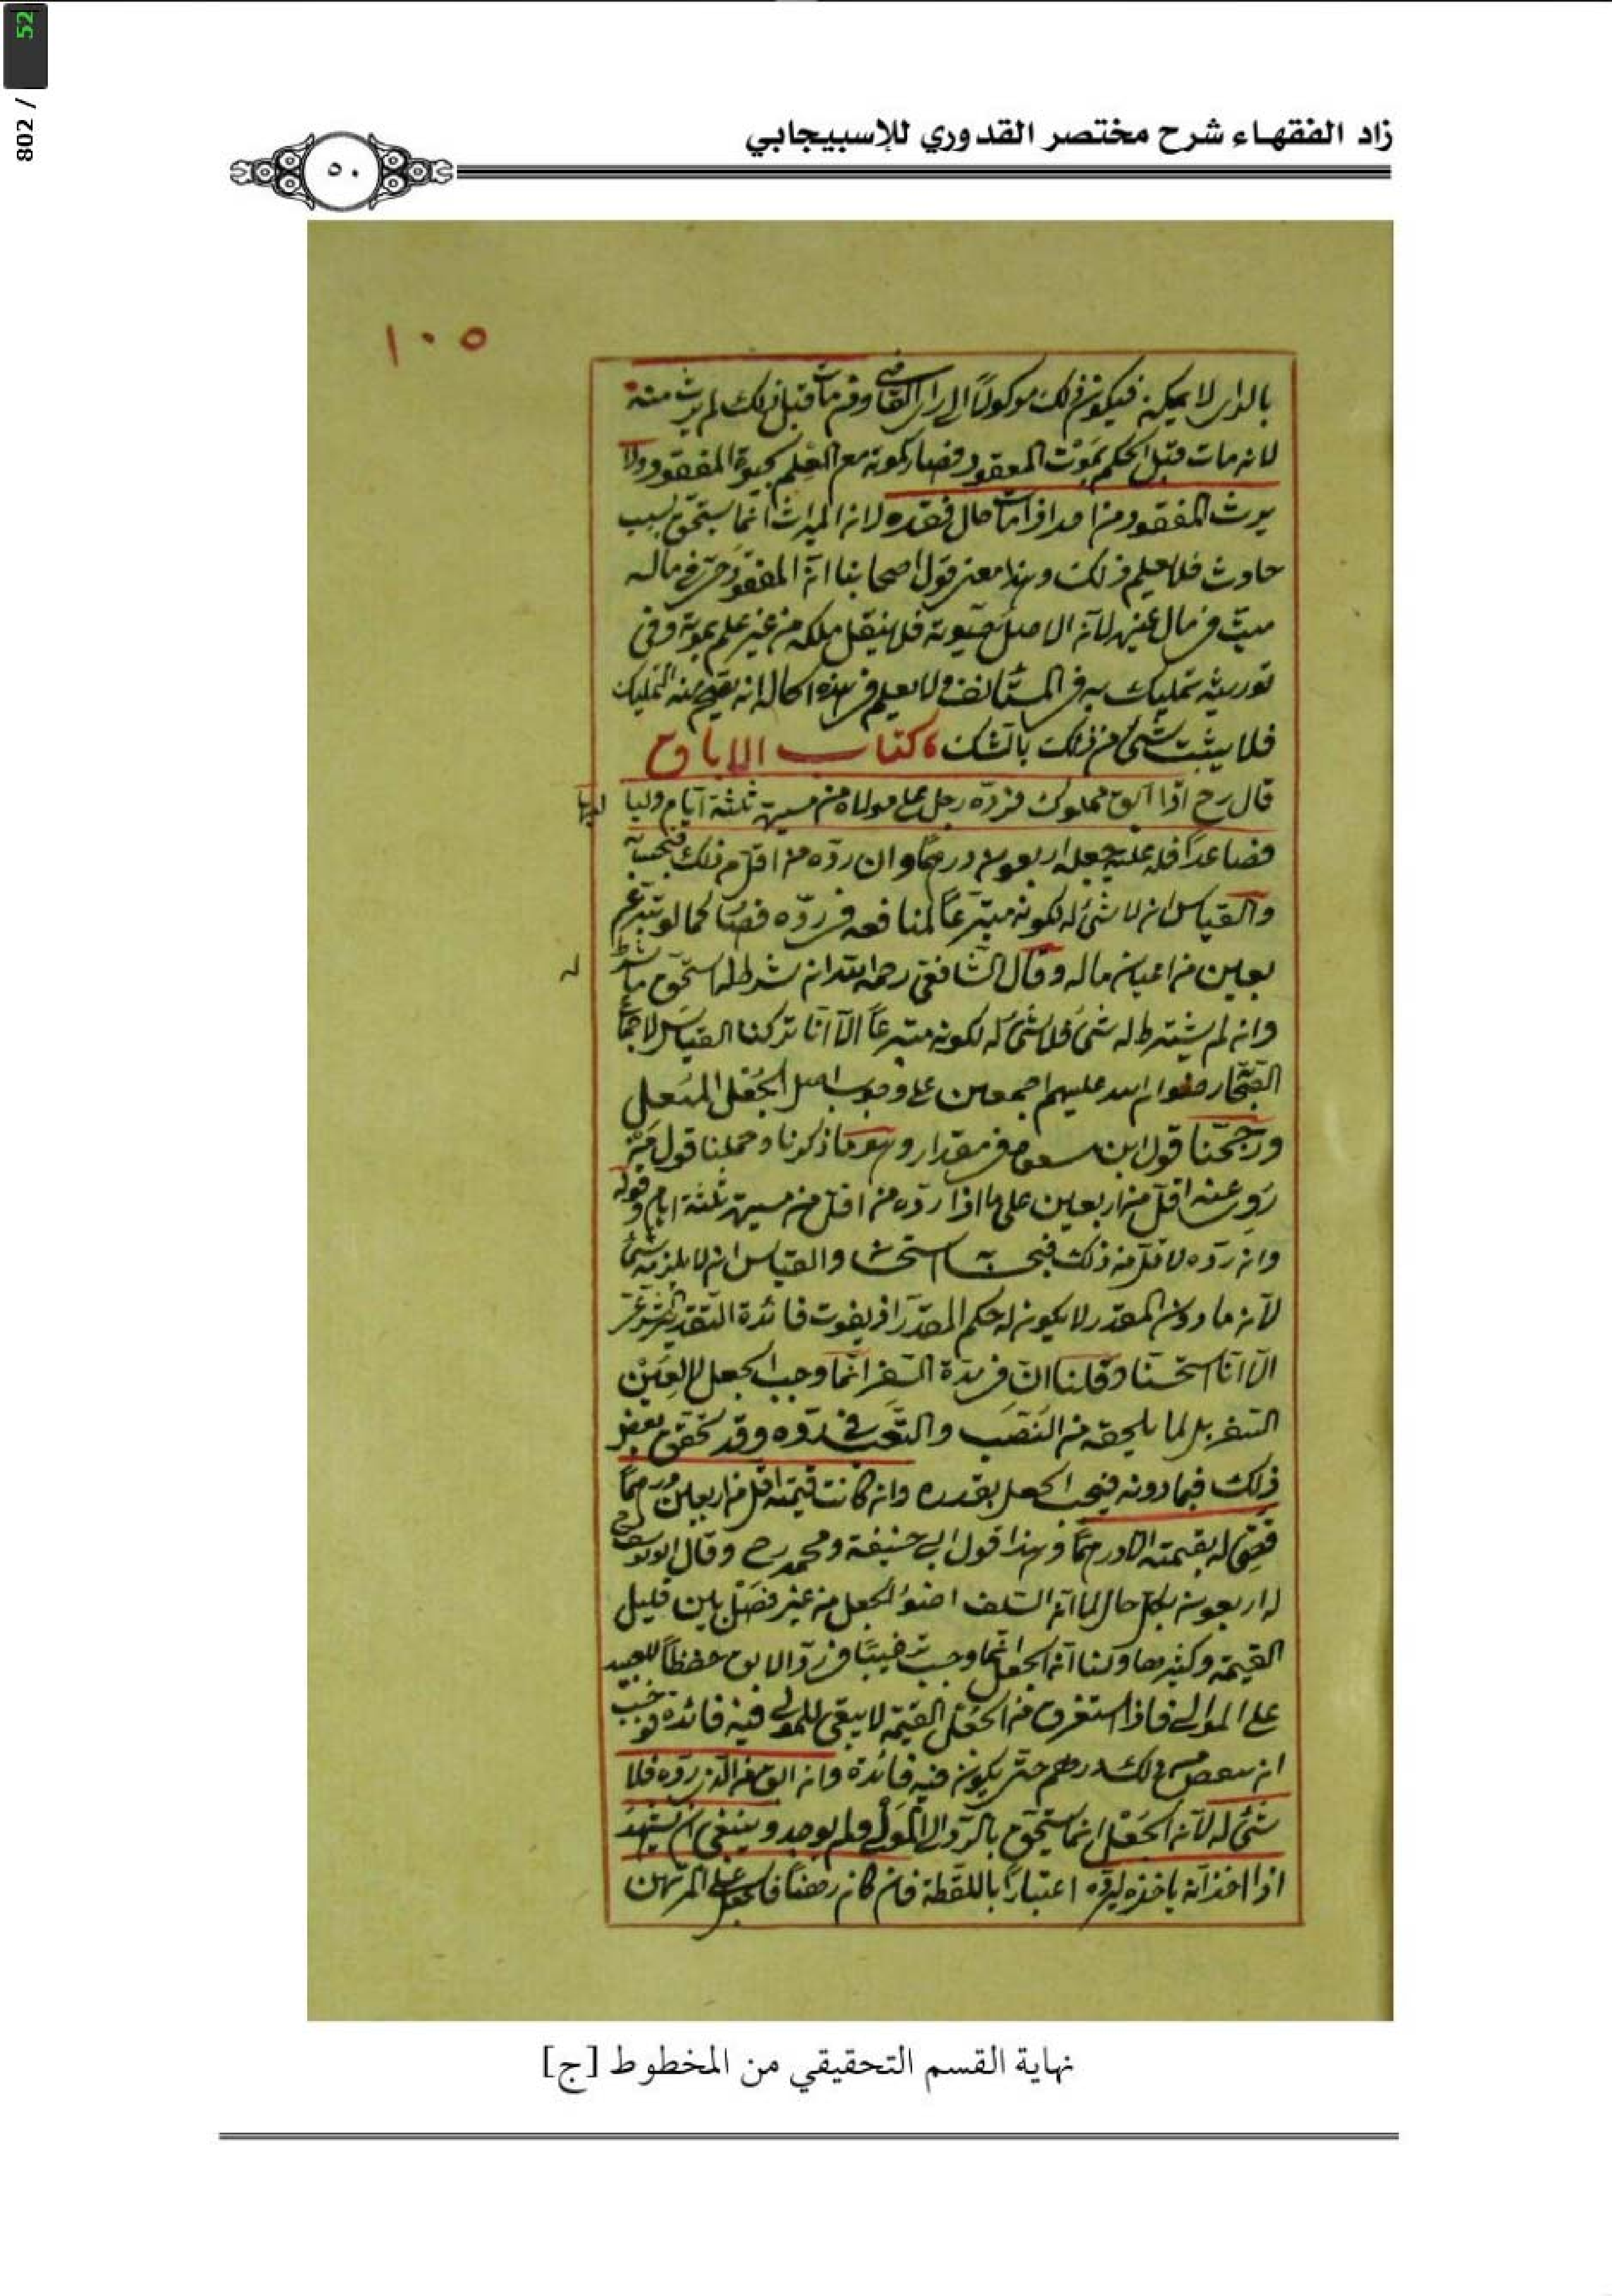 52
/ 802
زاد الفقهاء شرح مختصر القدوري للإسبيجابي
٥٠
١٠٥
بالراى لا يمكن فيكون ذلك موكولاً الى راى القاضى ومن مات قبل ذلك لم يرث منه
لانه مات قبل الحكم بموت المفقود فصار كونه مع العلم بحيوة المفقود ولا
يرث المفقود من احد اذا مات حال فقده لان الميراث انما يستحق بسبب
حادث فلا يعلم ذلك وهذا معنى قول اصحابنا ان المفقود حى فى ماله
ميت فى مال غيره لان الاصل حيوته فلا ينقل ملكه من غير علم بموته وفى
توريثه تمليك له فى المستأنف ولا يعلم فى هذه الحالة انه يصح منه التمليك
فلا يثبت شئ من ذلك بالشك كتاب الاباق
قال رح اذا ابق مملوك فرده رجل على مولاه من مسيرة ثلثة ايام ولياليها
فصاعداً فله عليه جعله اربعون درهمًا وان رده من اقل من ذلك فبحسابه
والقياس ان لا شئ له لكونه متبرعاً لمنافعه فى رده فصار كما لو تبرع
بعين من اعيان ماله وقال الشافعى رحمه الله ان شرط له استحق ما شرط له
وان لم يشترط له شئ فلا شئ له لكونه متبرعاً الا انا تركنا القياس لاجماع
الصحابة رضوان الله عليهم اجمعين على وجوب اصل الجعل
ورجحنا قول ابن مسعود فى مقداره وهو ما ذكرنا وحملنا قول من
روى عنه اقل من اربعين على ما اذا رده من اقل من مسيرة ثلثة ايام وقوله
وان رده لاقل من ذلك فبحسابه استحسانا والقياس ان لا يلزمه شئ
لان ما دون المقدر لا يكون له حكم المقدر اذ يفوت فائدة التقدير الشرعى
الا انا استحسنا وقلنا ان فى مدة السفر انما وجب الجعل لا لعين
السفر بل لما يلحقه من النصب والتعب فى رده وقد تحقق بعض
ذلك فيما دونه فيجب الجعل بقدره وان كانت قيمته اقل من اربعين درهمًا
قضى له بقيمته الا درهمًا وهذا قول ابى حنيفة ومحمد رح وقال ابو يوسف رح
له اربعون بكل حال لما ان السلف اوجبوا الجعل من غير فصل بين قليل
القيمة وكثيرها ولنا ان الجعل انما وجب ترغيبًا فى رد الابق حفظاً للعبيد
على الموالى فاذا استغرق من الجعل القيمة لا يبقى للمولى فيه فائدة فوجب
ان ينقص من ذلك درهم حتى يكون فيه فائدة وان ابق من الذى رده فلا
شئ له لان الجعل انما يستحق بالرد الى المولى ولم يوجد وينبغى ان يشهد
اذا اخذ انه ياخذه ليرده اعتباراً باللقطة فان كان رهناً فالجعل على المرتهن
نهاية القسم التحقيقي من المخطوط [ج]